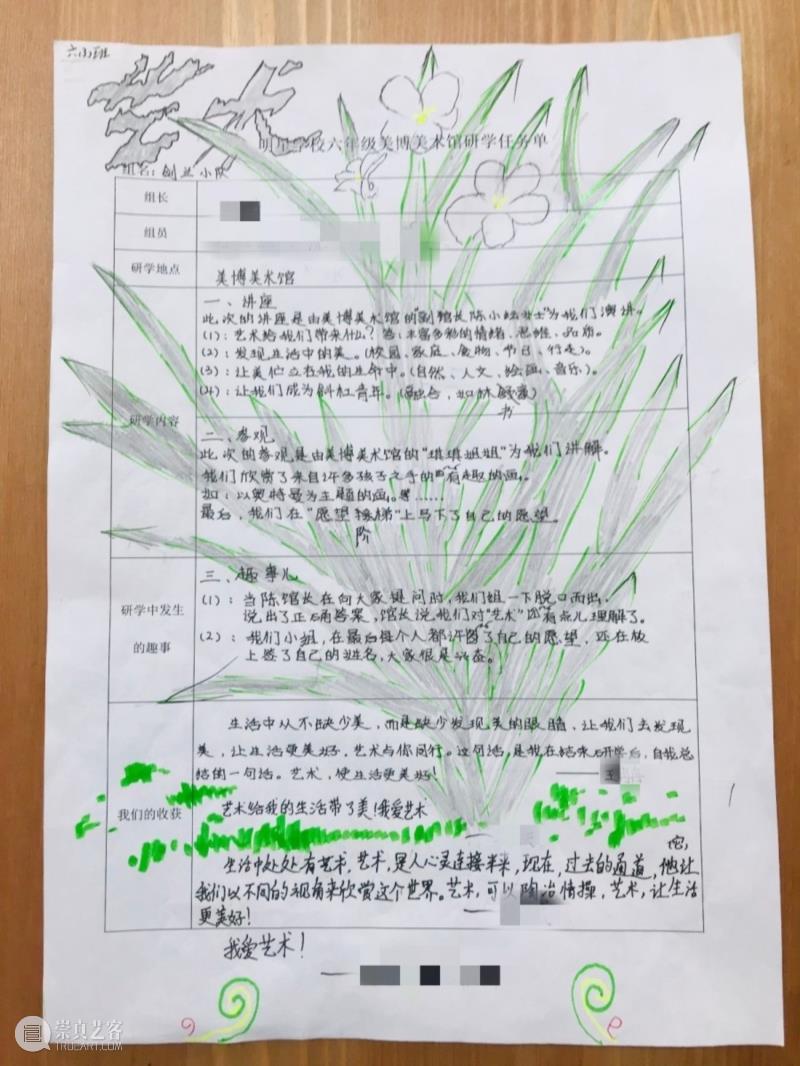 六(3)班
艺术
明 学校六年级美博美术馆研学任务单
组名:创兰小队
组长
组员
研学地点
美博美术馆
研学内容
一、讲座
此次的讲座是由美博美术馆的"副馆长陈小 女士"为我们演讲。
(1):艺术给我们带来什么?答:丰富多彩的情绪、思维、品质。
(2):发现生活中的美。(校园、家庭、食物、节日、行走)。
(3):让美伫立在我的生命中。(自然、人文、绘画、音乐)。
(4):让我们成为斜杠青年。(融合,如林 )
书
二、参观
此次的参观是由美博美术馆的"琪琪姐姐"为我们讲解。
我们欣赏了来自许多孩子之手的 有趣的画。
如:以奥特曼为主题的画。 ……
最后,我们在"愿望 梯"上写下了自己的愿望。
阶
研学中发生
的趣事
三、趣事儿
(1):当陈馆长在向大家提问时,我们组一下脱口而出,
说出了正确答案,馆长说我们对"艺术" 有点儿理解了。
(2):我们小组,在最后每个人都许 了自己的愿望,还在放
上签了自己的姓名,大家很是兴奋。
我们的收获
生活中从不缺少美,而是缺少发现美的眼睛,让我们去发现
美,让生活更美好,艺术与你同行。这句话,是我在结束研学后,自我总
结的一句话。艺术,使生活更美好!
艺术给我的生活带了美!我爱艺术
生活中处处有艺术,艺术,是人心灵连接未来,现在,过去的通道,他让
我们以不同的视角来欣赏这个世界。艺术,可以陶冶情操,艺术,让生活
更美好!
我爱艺术!
崇真艺客
TRUEART.COM